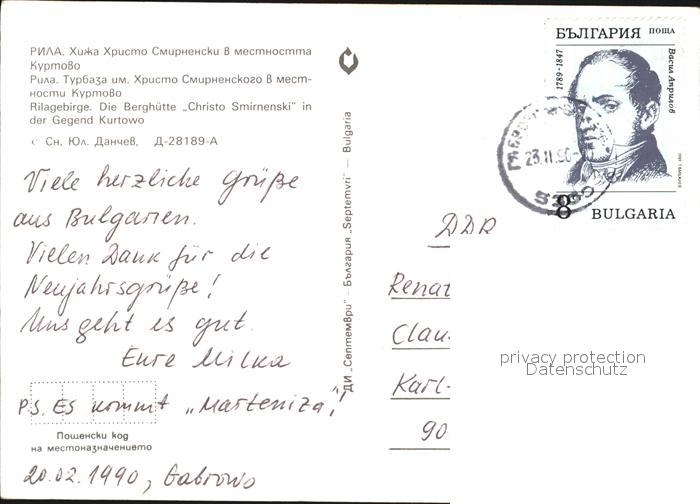 РИЛА. Хижа Христо Смирненски в местността
Куртово
Рила. Турбаза им. Христо Смирненского в мест-
ности Куртово
Rilagebirge. Die Berghütte „Christo Smirnenski" in
der Gegend Kurtowo
Сн. Юл. Данчев, Д-28189-А
Viele herzliche Grüße
aus Bulgarien.
Vielen Dank für die
Neujahrsgrüße!
Uns geht es gut.
Eure Milka
P.S. Es kommt „Marteniza"!
Пощенски код
на местоназначението
20.02.1990, Gabrowo
ДИ „Септември" – България „Septemvri" – Bulgaria
БЪЛГАРИЯ ПОЩА
1789-1847
Васил Априлов
23.II.90
8 BULGARIA
DDR
Renat
Clau
Karl-
90
privacy protection
Datenschutz